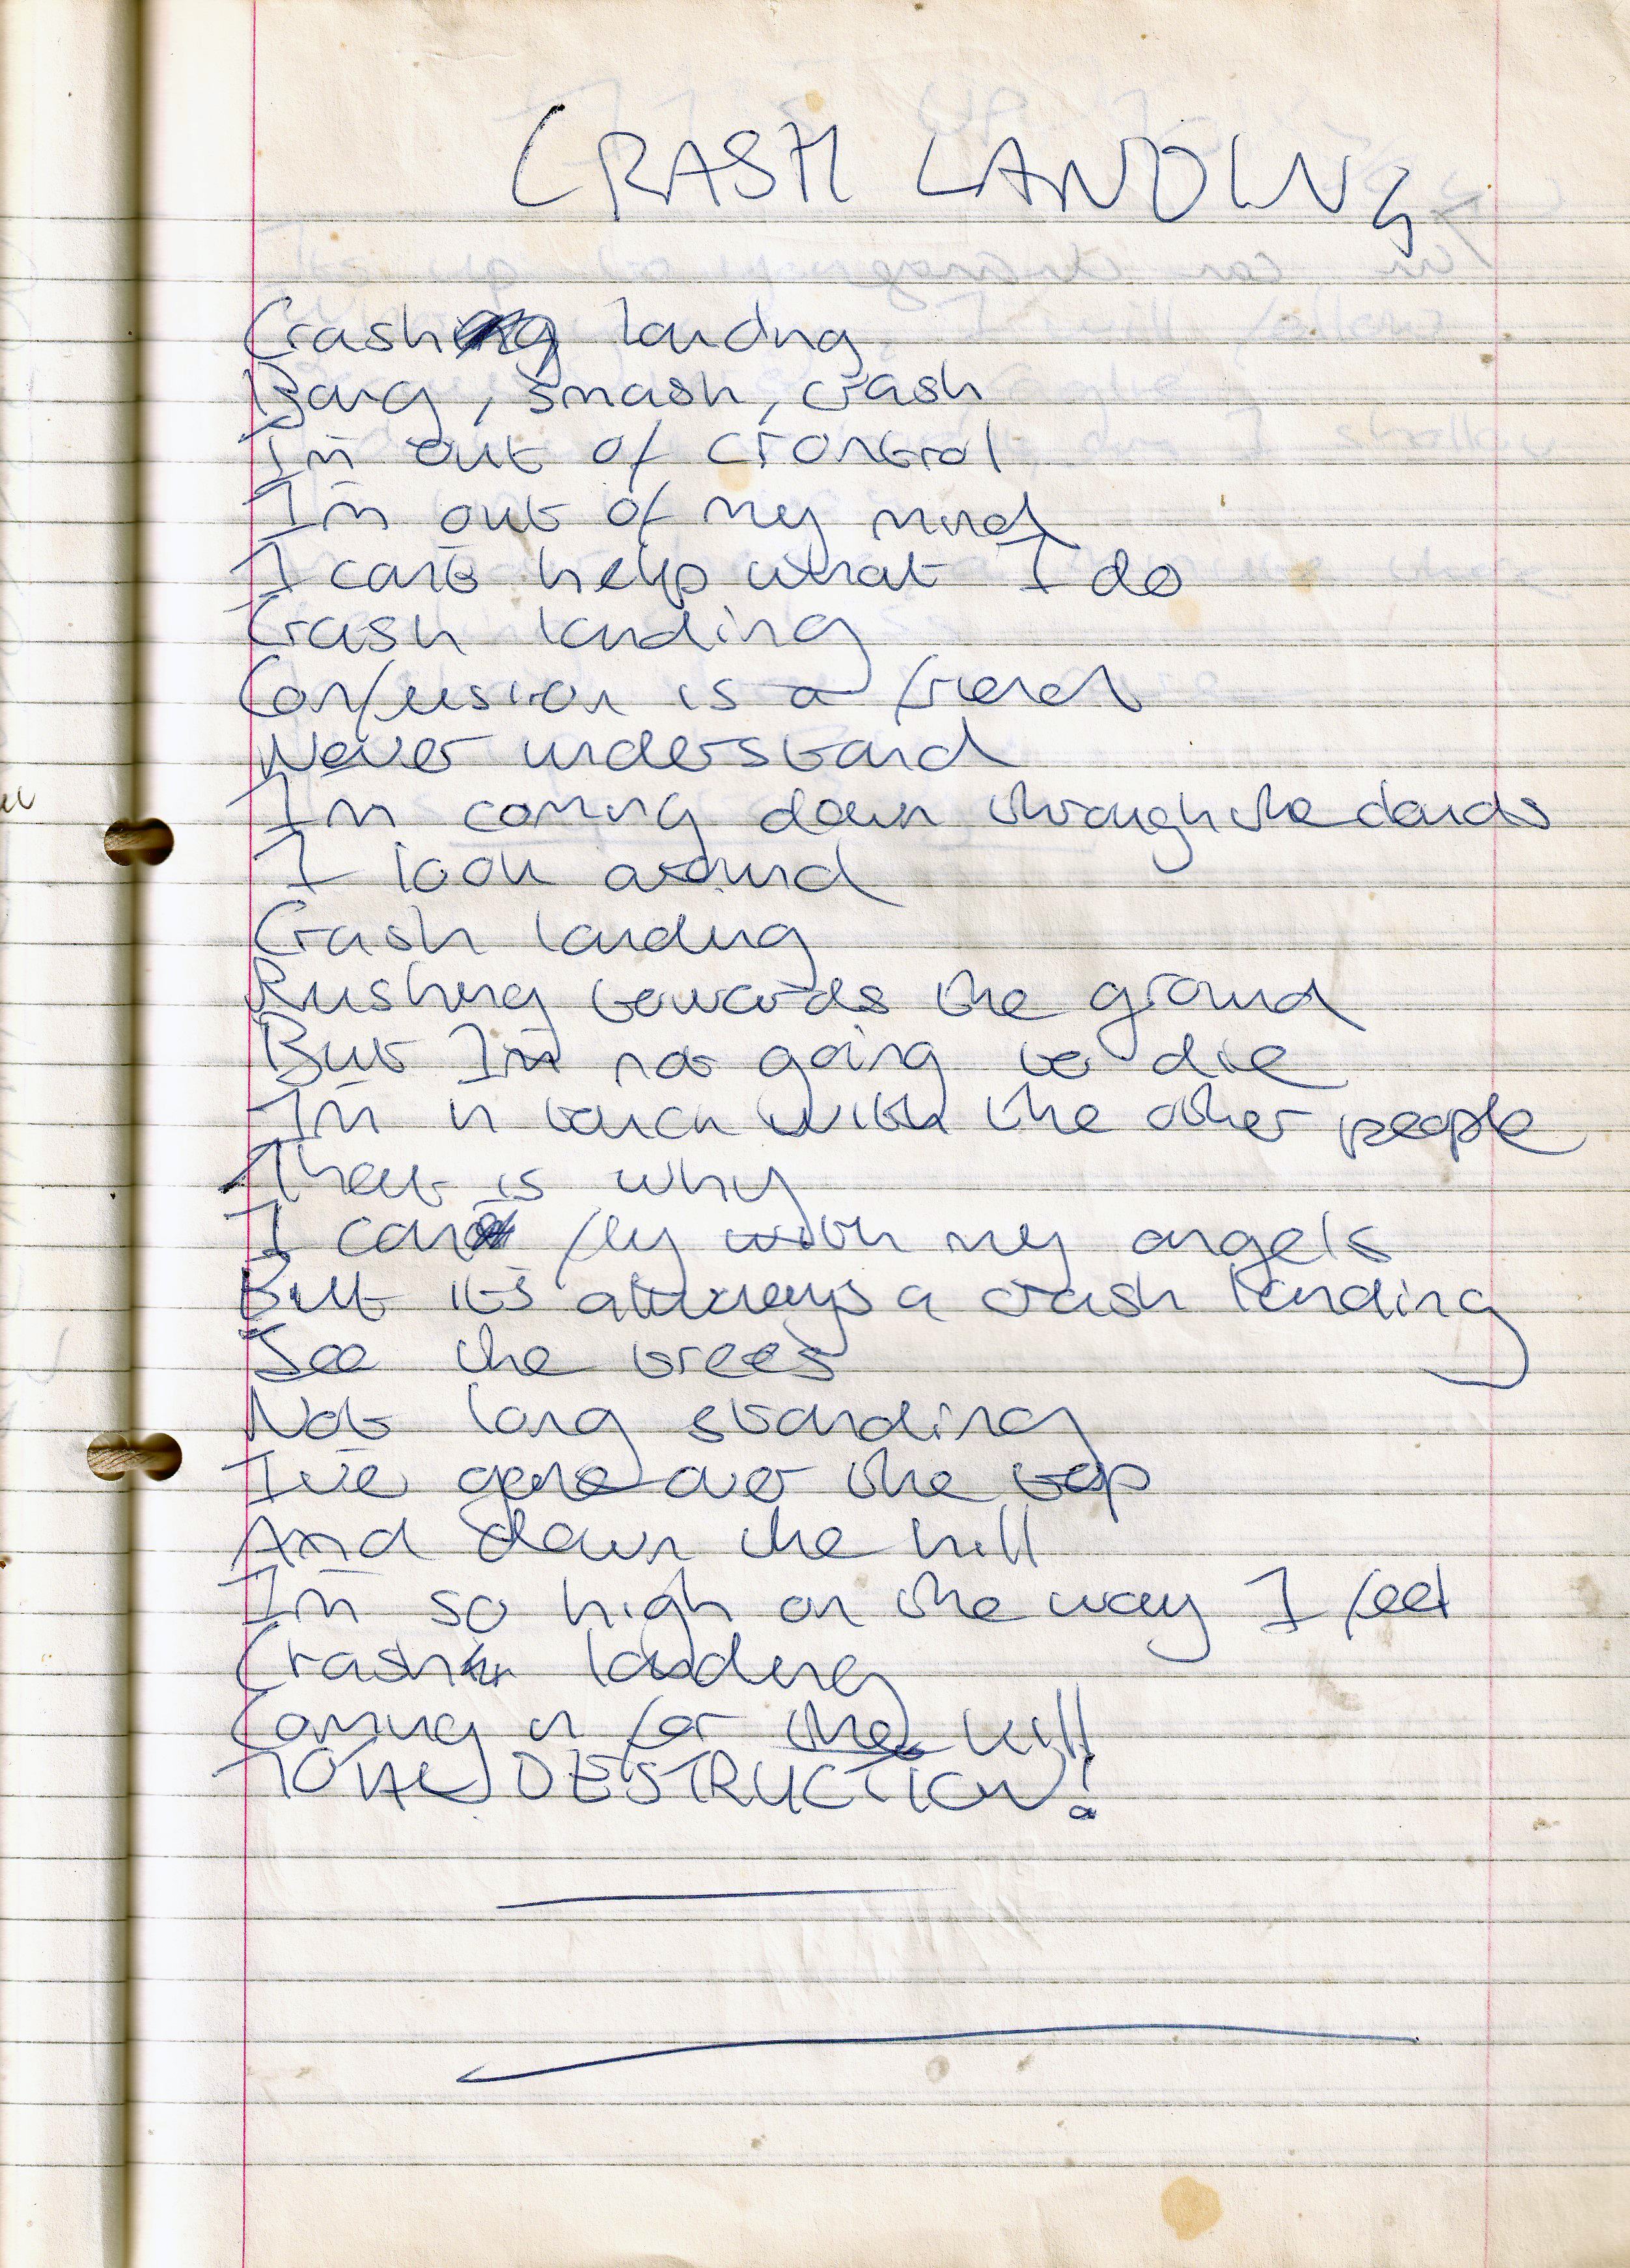 CRASH LANDING
Crash landing
Bang, smash, crash
I'm out of crontrol
I'm out of my mind
I cant help what I do
Crash landing
Confusion is a friend
Never understand
Im coming down through the clouds
I look around
Crash landing
Rushing towards the ground
But I'm not going to die
I'm in touch with the other people
That is why
I can fly with my angels
But it's always a crash landing
See the trees
Not long standing
I've gone over the top
And down the hill
I'm so high on the way I feel
Crash landing
Coming in for the kill
TOTAL DESTRUCTION!